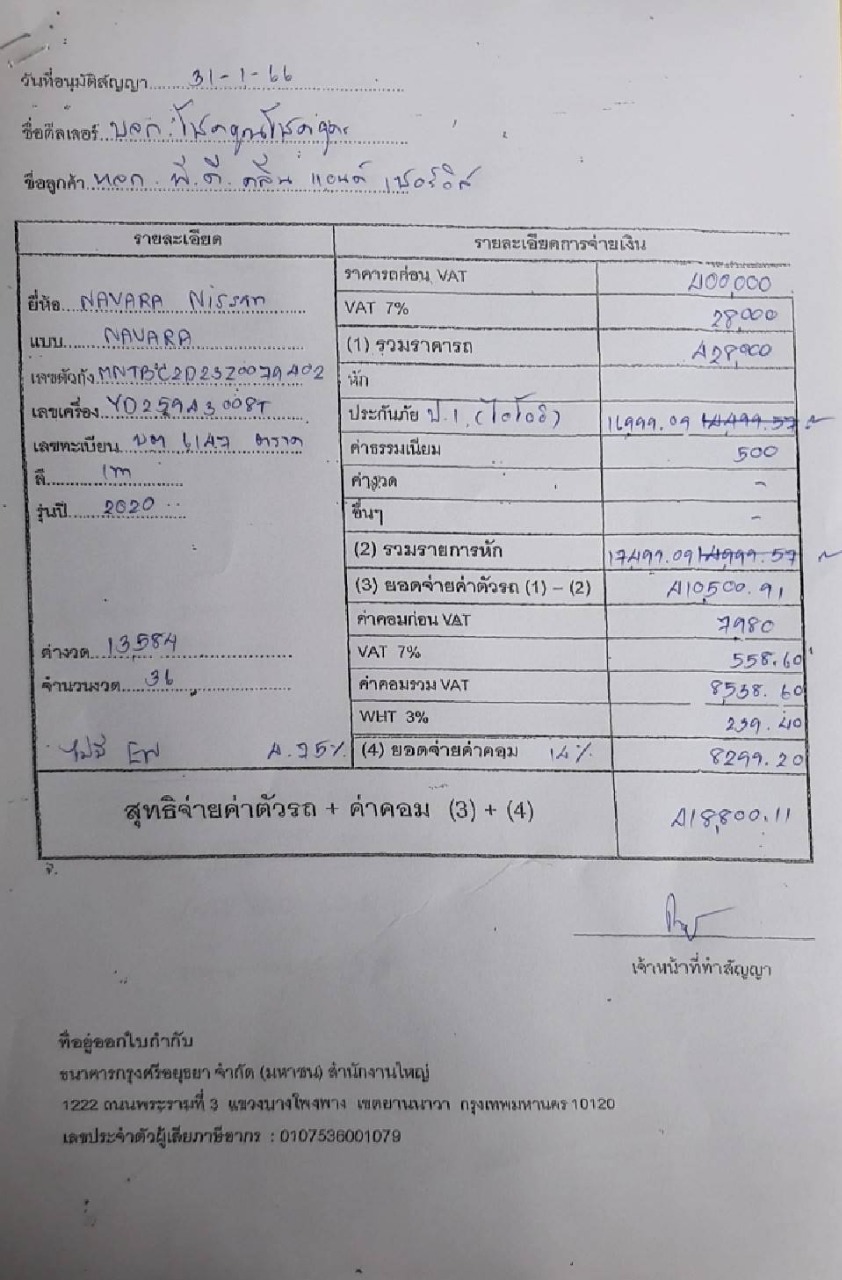 วันที่อนุมัติสัญญา 31-1-66
ชื่อดีลเลอร์ บจก. โชคคูณโชค
ชื่อลูกค้า หจก. พี.ดี. คลีน แอนด์ เซอร์วิส
รายละเอียด
รายละเอียดการจ่ายเงิน
ราคารถก่อน VAT 400,000
ยี่ห้อ NAVARA Nissan
VAT 7% 28,000
แบบ NAVARA
(1) รวมราคารถ 428,000
เลขตัวถัง MNTBC2D23Z0079402
หัก
เลขเครื่อง YD25943008T
ประกันภัย ป.1. (ไอโออิ) 16999.09 14499.57
เลขทะเบียน บต 6147 ตราด
ค่าธรรมเนียม 500
สี เทา
ค่างวด -
รุ่นปี 2020
อื่นๆ -
(2) รวมรายการหัก 17499.09 14999.57
(3) ยอดจ่ายค่าตัวรถ (1) – (2) 410,500.91
ค่าคอมก่อน VAT 7980
ค่างวด 13584
VAT 7% 558.60
จำนวนงวด 36
ค่าคอมรวม VAT 8538.60
WHT 3% 239.40
ไม่มี EW 4.95%
(4) ยอดจ่ายค่าคอม 14% 8299.20
สุทธิจ่ายค่าตัวรถ + ค่าคอม (3) + (4) 418,800.11
เจ้าหน้าที่ทำสัญญา
ที่อยู่ออกใบกำกับ
ธนาคารกรุงศรีอยุธยา จำกัด (มหาชน) สำนักงานใหญ่
1222 ถนนพระรามที่ 3 แขวงบางโพงพาง เขตยานนาวา กรุงเทพมหานคร 10120
เลขประจำตัวผู้เสียภาษีอากร : 0107536001079